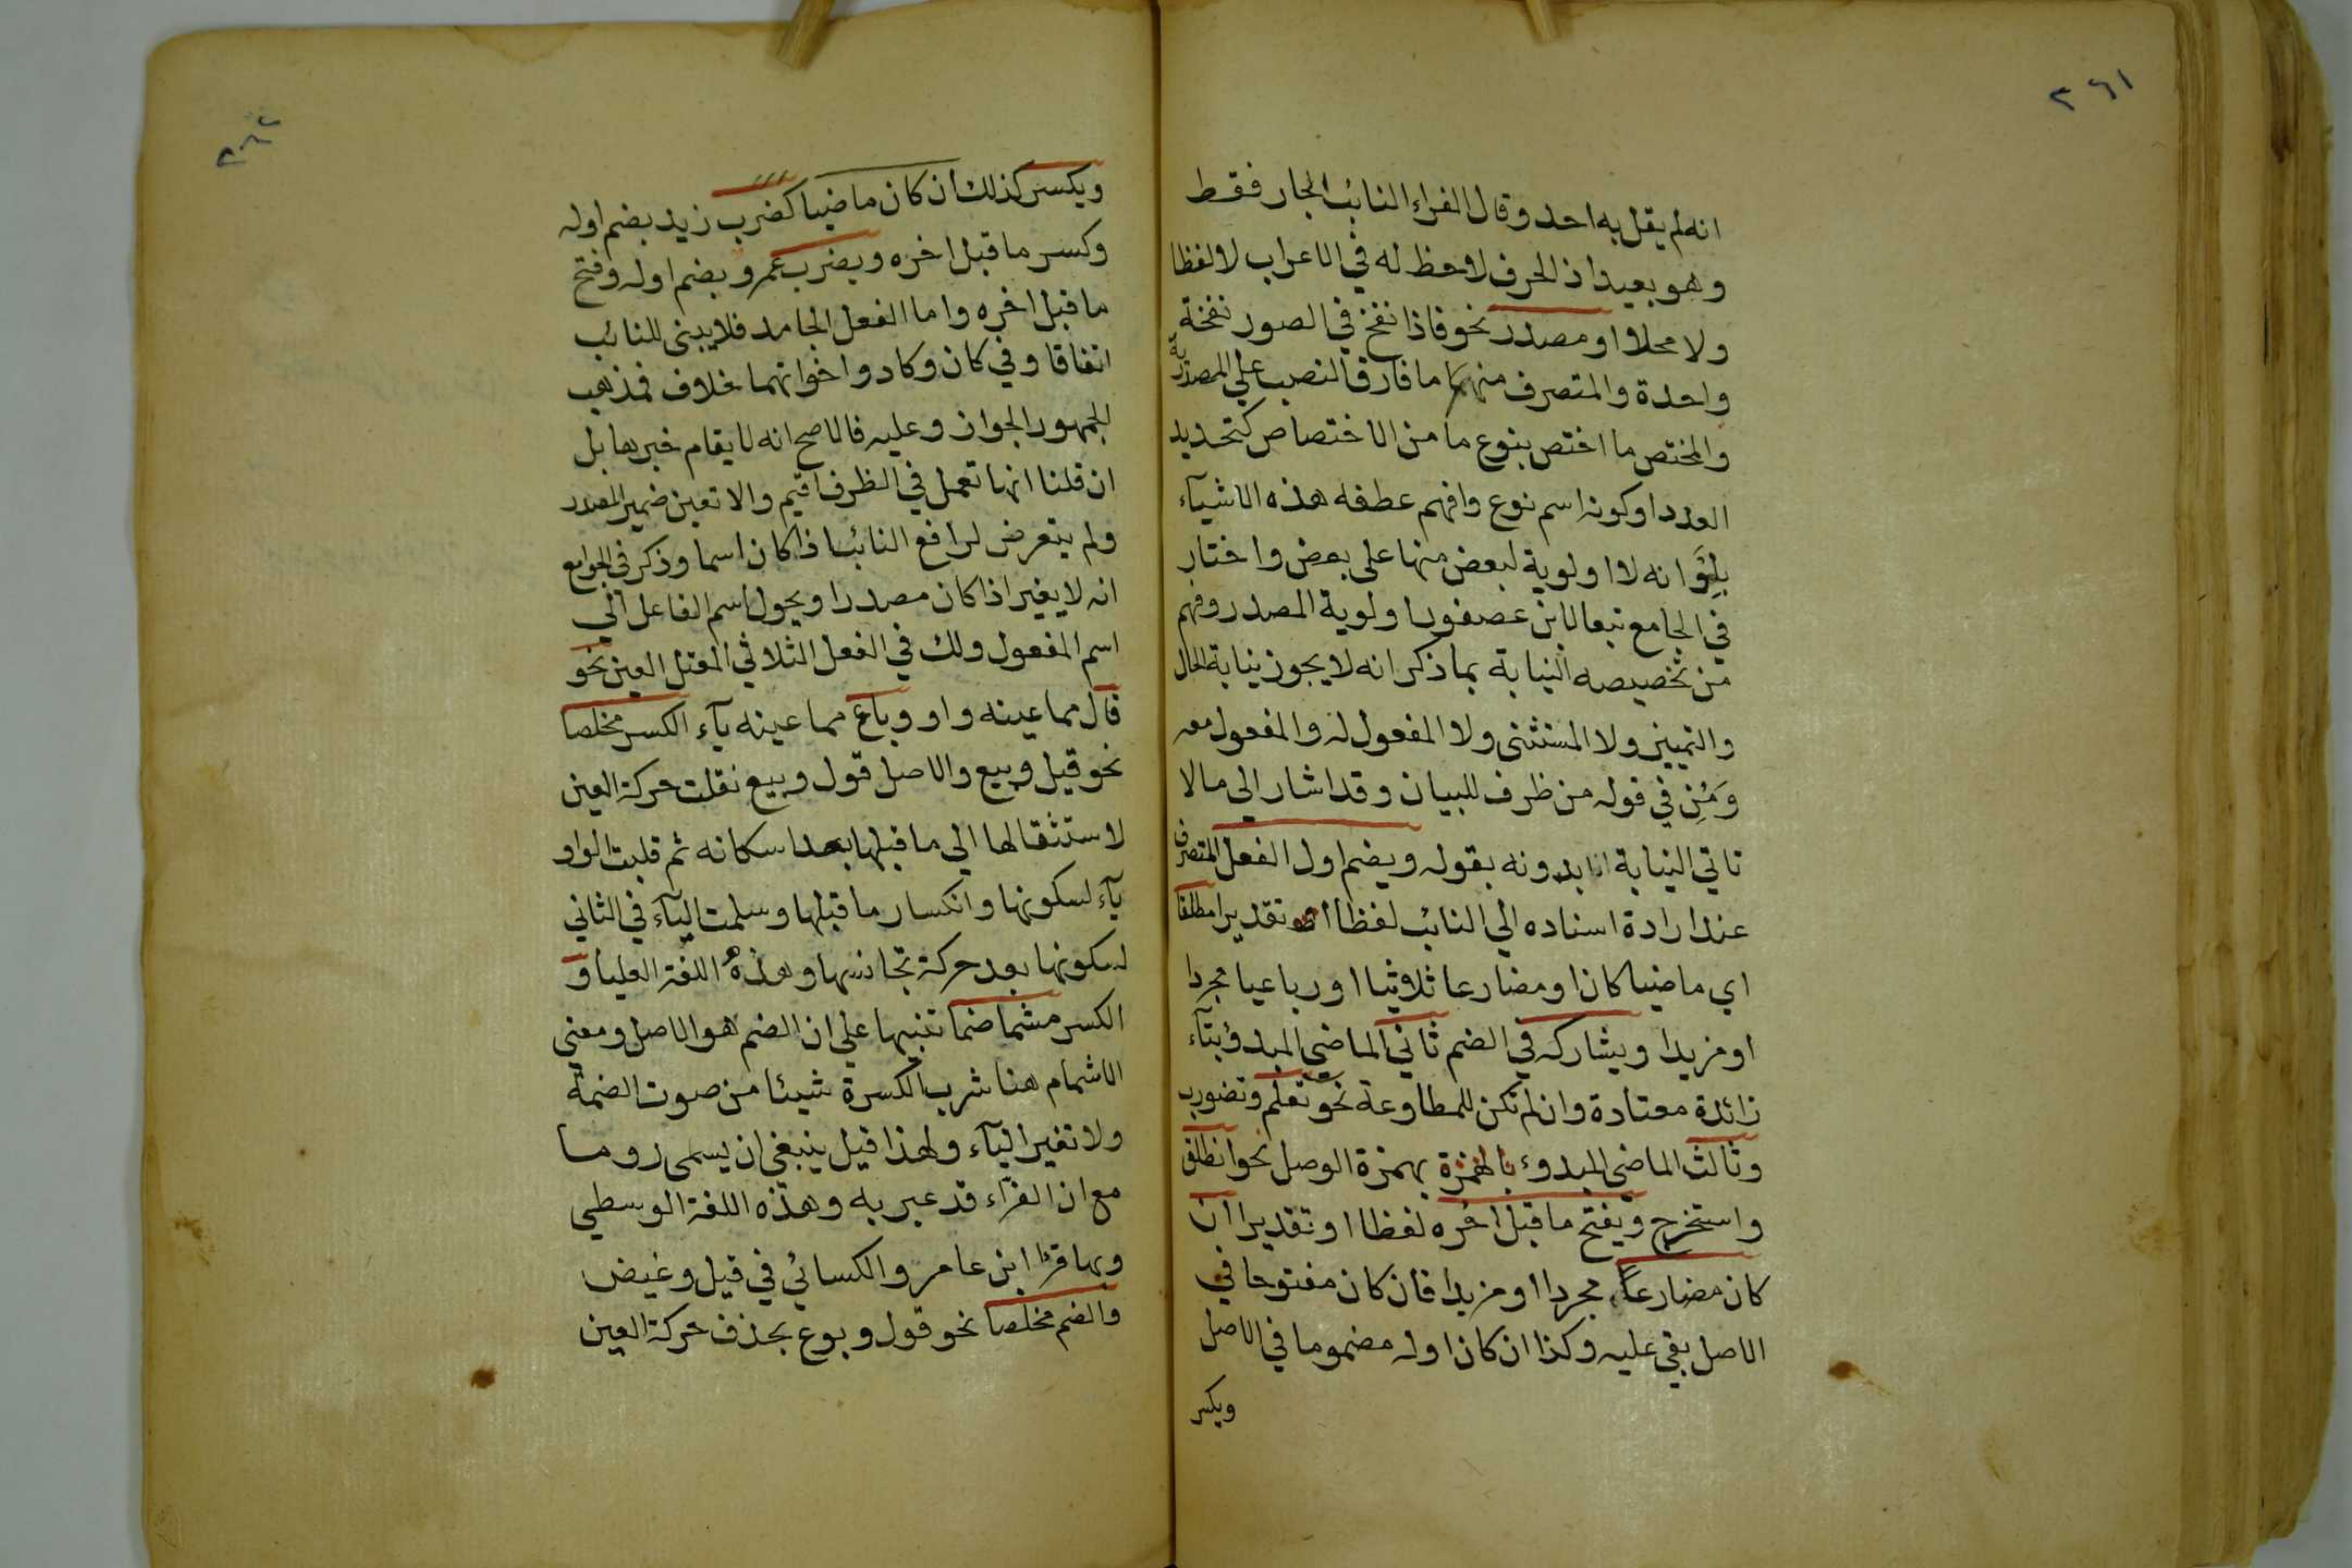 ٢٦١
انه لم يقل به احد وقال الفراء النائب الجار فقط
وهو بعيد اذ الحرف لا حظ له في الاعراب لا لفظا
ولا محلا او مصدر نحو فاذا نفخ في الصور نفخة
واحدة والمتصرف منهما ما فارق النصب على المصدرية
والمختص ما اختص بنوع ما من الاختصاص كتحديد
العدد او كونه اسم نوع وافهم عطفه هذه الاشيآء
بِاَوْ انه لا اولوية لبعض منها على بعض واختار
في الجامع تبعا لابن عصفور اولوية المصدر وفهم
من تخصيصه النيابة بما ذكر انه لا يجوز نيابة الحال
والتمييز ولا المستثنى ولا المفعول له والمفعول معه
وَمِنْ في قوله من ظرف للبيان وقد اشار الى ما لا
تاتي النيابة الا بدونه بقوله ويضم اول الفعل المتصرف
عند ارادة اسناده الي النائب لفظا او تقديرا مطلقا
اي ماضيا كان او مضارعا ثلاثيا او رباعيا مجردا
او مزيدا ويشاركه في الضم ثاني الماضي المبدؤ بتآء
زائدة معتادة وان لم تكن للمطاوعة نحو تعلم وتضورب
وثالث الماضي المبدوء بالهمزة بهمزة الوصل نحو انطلق
واستخرج ويفتح ما قبل اخره لفظا او تقديرا ان
كان مضارعاً مجردا او مزيدا فان كان مفتوحا في
الاصل بقي عليه وكذا ان كان اوله مضموما في الاصل
ويكسر
٢٦٢
ويكسر كذلك ان كان ماضيا كضرب زيد بضم اوله
وكسر ما قبل اخره ويضرب عمرو بضم اوله وفتح
ما قبل اخره واما الفعل الجامد فلا يبنى للنائب
اتفاقا وفي كان وكاد واخواتهما خلاف فمذهب
الجمهور الجواز وعليه فالاصح انه لا يقام خبرها بل
ان قلنا انها تعمل في الظرف اقيم والا تعين ضمير المصدر
ولم يتعرض لرافع النائب اذا كان اسما وذكر في الجوامع
انه لا يغير اذا كان مصدرا ويحول اسم الفاعل الي
اسم المفعول ولك في الفعل الثلاثي المعتل العين نحو
قال مما عينه واو وباع مما عينه يآء الكسر مخلصا
نحو قيل وبيع والاصل قول وبيع نقلت حركة العين
لاستثقالها الي ما قبلها بعد اسكانه ثم قلبت الواو
يآء لسكونها وانكسار ما قبلها وسلمت اليآء في الثاني
لسكونها بعد حركة تجانسها وهذه اللغة العليا و
الكسر مشما ضما تنبيها على ان الضم هو الاصل ومعني
الاشمام هنا شرب الكسرة شيئا من صوت الضمة
ولا تغير اليآء ولهذا قيل ينبغي ان يسمى روما
مع ان القرّاء قد عبر به وهذه اللغة الوسطي
وبها قرا ابن عامر والكسائي في قيل وغيض
والضم مخلصا نحو قول وبوع بحذف حركة العين